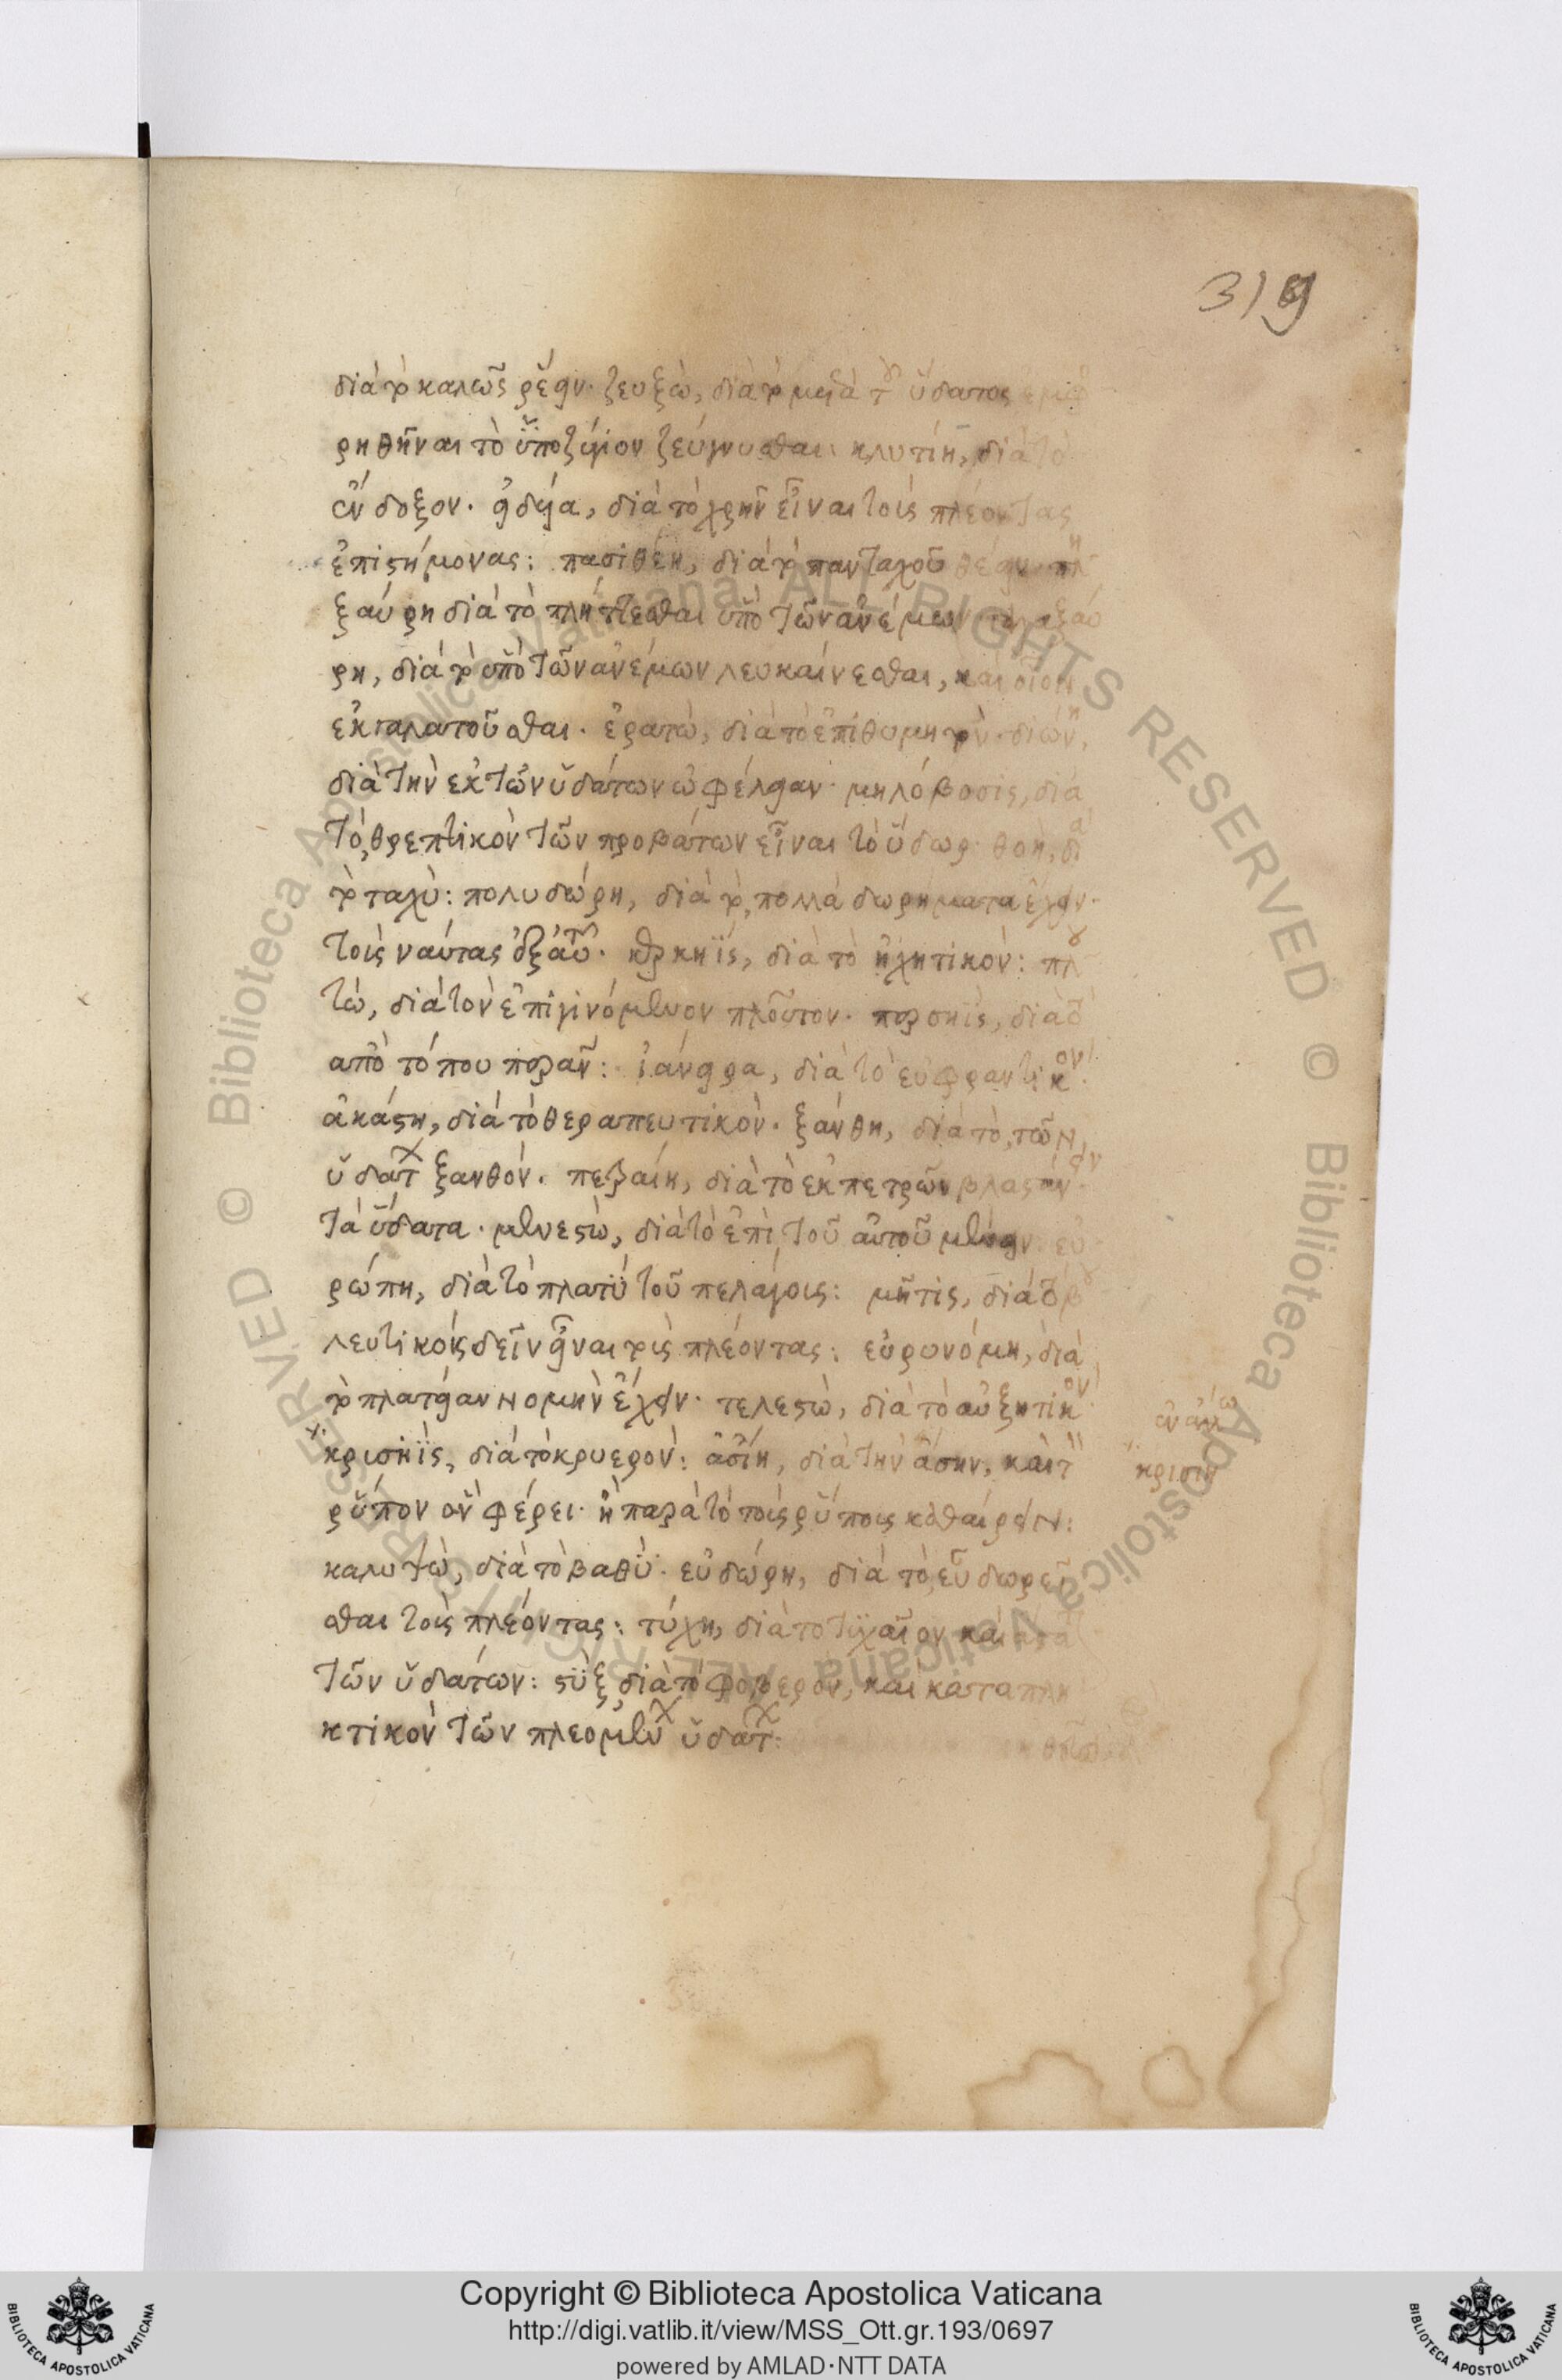 319
διὰ τὸ καλῶς ῥέειν. ζευξὼ, διὰ τὸ μετὰ τοῦ ὕδατος
ρηθῆναι τὸ ὑποζύγιον ζεύγνυσθαι: κλυτίη, διὰ τὸ
ἔνδοξον. εἰδυῖα, διὰ τὸ χρῆν εἶναι τοὺς πλέοντας
ἐπιστήμονας: πασιθέη, διὰ τὸ πανταχοῦ θέειν. πλη
ξαύρη διὰ τὸ πλήττεσθαι ὑπὸ τῶν ἀνέμων. γαλαξαύ
ρη, διὰ τὸ ὑπὸ τῶν ἀνέμων λευκαίνεσθαι, καὶ οἷον
ἐκγαλατοῦσθαι. ἐρατὼ, διὰ τὸ ἐπιθυμητόν. διώνη,
διὰ τὴν ἐκ τῶν ὑδάτων ὠφέλειαν. μηλόβοσις, διὰ
τὸ θρεπτικὸν τῶν προβάτων εἶναι τὸ ὕδωρ. θοὴ, διὰ
τὸ ταχύ: πολυδώρη, διὰ τὸ πολλὰ δωρήματα ἔχειν
τοὺς ναύτας ἐξ αὐτοῦ. κερκηῒς, διὰ τὸ ἠχητικόν: πλου
τώ, διὰ τὸν ἐπιγινόμενον πλοῦτον. περσηῒς, διὰ τὸ
ἀπὸ τόπου περᾶν: ἰάνειρα, διὰ τὸ εὐφραντικόν.
ἀκάστη, διὰ τὸ θεραπευτικόν. ξάνθη, διὰ τὸ τῶν
ὑδάτων ξανθόν. πετραίη, διὰ τὸ ἐκ πετρῶν βλαστάνειν
τὰ ὕδατα. μενεστὼ, διὰ τὸ ἐπὶ τοῦ αὐτοῦ μένειν. εὐ
ρώπη, διὰ τὸ πλατὺ τοῦ πελάγους: μῆτις, διὰ τὸ βου
λευτικοὺς δεῖν εἶναι τοὺς πλέοντας: εὐρυνόμη, διὰ
τὸ πλατεῖαν νομὴν ἔχειν. τελεστὼ, διὰ τὸ αὐξητικόν.
κρισηῒς, διὰ τὸ κρυερόν: ἀσίη, διὰ τὴν ἄσην, καὶ τὸν
ῥύπον ὃν φέρει. ἢ παρὰ τὸ τοὺς ῥύπους καθαίρειν:
καλυψὼ, διὰ τὸ βαθύ. εὐδώρη, διὰ τὸ εὖ δωρεῖ
σθαι τοὺς πλέοντας: τύχη, διὰ τὸ τυχαῖον καὶ
τῶν ὑδάτων: στὺξ διὰ τὸ φοβερὸν, καὶ καταπλη
κτικὸν τῶν πλεομένων ὑδάτων:
κρισίη
Copyright © Biblioteca Apostolica Vaticana
http://digi.vatlib.it/view/MSS_Ott.gr.193/0697
powered by AMLAD·NTT DATA
BIBLIOTECA APOSTOLICA VATICANA
BIBLIOTECA APOSTOLICA VATICANA
© Biblioteca Apostolica Vaticana ALL RIGHTS RESERVED © Biblioteca Apostolica Vaticana ALL RIGHTS RESERVED